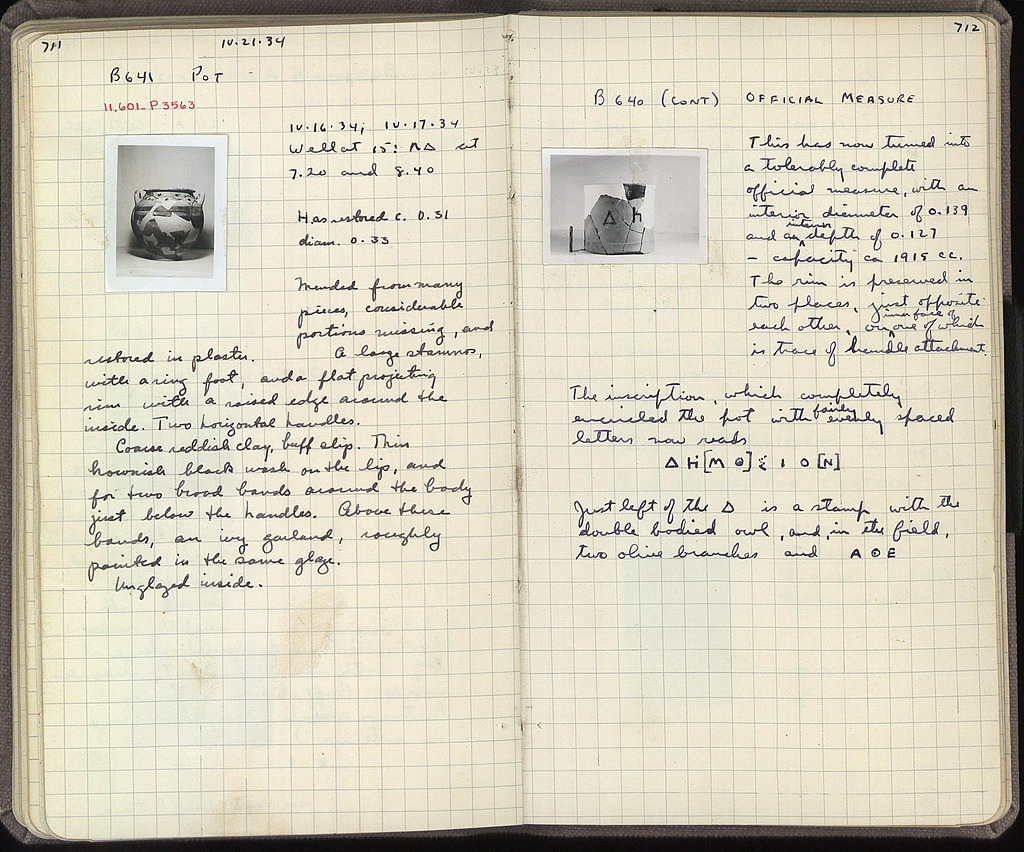 711
IV.21.34
B 641 POT
11.601-P 3563
IV.16.34; IV.17.34
Well at 15: ΛΔ at
7.20 and 8.40
H as restored c. 0.31
diam. 0.33
Mended from many
pieces, considerable
portions missing, and
restored in plaster. A large stamnos,
with a ring foot, and a flat projecting
rim with a raised edge around the
inside. Two horizontal handles.
Coarse reddish clay, buff slip. Thin
brownish black wash on the lip, and
for two broad bands around the body
just below the handles. Above these
bands, an ivy garland, roughly
painted in the same glaze.
Unglazed inside.
712
B 640 (CONT) OFFICIAL MEASURE
This has now turned into
a tolerably complete
official measure, with an
interior diameter of 0.139
and an interior depth of 0.127
– capacity ca 1915 cc.
The rim is preserved in
two places, just opposite
each other, on inner face of one of which
is trace of handle attachment.
The inscription, which completely
encircled the pot with fairly evenly spaced
letters now reads
Δ Η [Μ Ο] Σ Ι Ο [Ν]
Just left of the Δ is a stamp with the
double bodied owl, and, in the field,
two olive branches and Α Θ Ε
Δ Η